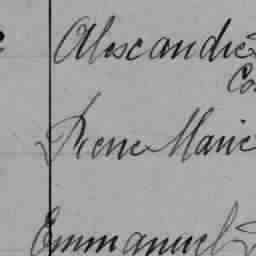 Alexandre
Co
Irene Marie
Emmanuel